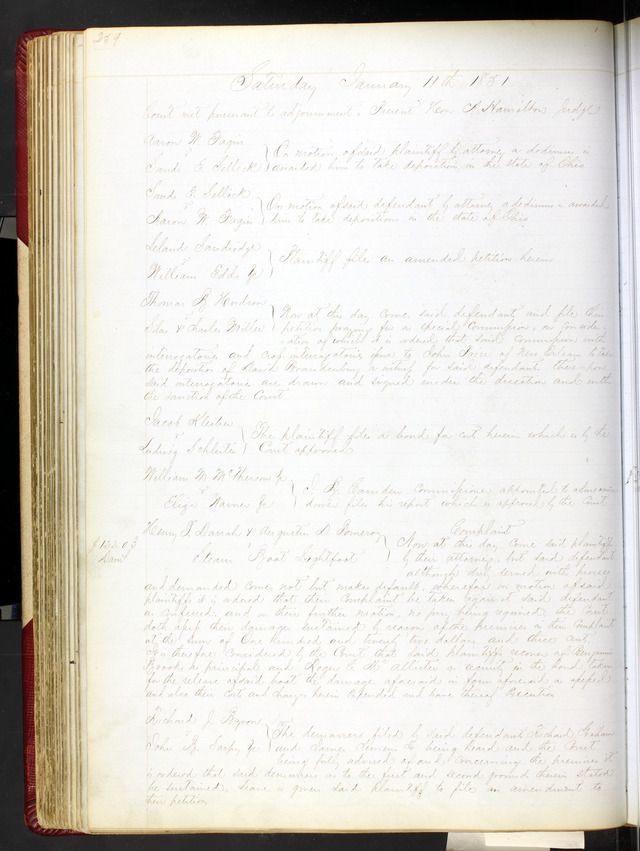 259
Saturday January 11th 1851
Court met pursuant to adjournment. Present Hon A Hamilton Judge
Aaron W. Fagin
vs
On motion of said plaintiff by attorney a dedimus is
awarded him to take deposition in the state of Ohio
vs
Aaron W. Fagin
On motion of said defendant by attorney a dedimus is awarded
him to take depositions in the state of Ohio
vs
William Edds &c
Plaintiff files an amended petition herein
Thomas
vs
& Charles Miller
Now at this day come said defendants and file their
petition praying for a special Commission, on consider-
ation of which it is ordered that said Commission with
interrogatories and cross interrogatories issue to John of New Orleans to take
the deposition of David a witness for said defendants
said interrogatories are drawn and signed under the direction and with
the sanction of the Court
Jacob
vs
Ludwig
The plaintiff files a bond for cost herein which is by the
Court approved
William M. McPherson &c
vs
Eliza &c
Camden Commissioner appointed to
files his report which is approved by the Court
Henry T. & Augustus S. Pomeroy
vs
Steam Boat Lightfoot
$122.03
Dam
Complaint
Now at this day come said plaintiffs
by their attorney but said defendant
although duly served with process
and demanded comes not but makes default, wherefore on motion of said
plaintiffs it is ordered that their Complaint be taken against said defendant
as confessed, and on their further motion no jury being required the Court
doth assess their damages sustained by reason of the premises in their Complaint
at the sum of One Hundred and twenty two dollars and three cents
It is therefore Considered by the Court that said plaintiffs recover of Benjamin
Brooks as principal and Roger as security in the bond taken
for the release of said boat the damages aforesaid in form aforesaid as assessed
and also their Cost and Charges herein Expended and have thereof Execution
Richard J.
vs
John &c
The demurrers filed by said defendants Richard Graham
and James being heard and the Court
being fully advised of and Concerning the premises it
is ordered that said demurrers as to the first and second ground therein stated
be sustained, leave is given said plaintiff to file an amendment to
their petition